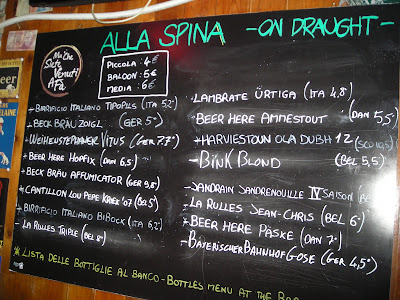 ALLA SPINA -ON DRAUGHT-
Ma Che
Siete
Venuti
A Fà
PICCOLA: 4€
BALOON: 5€
MEDIA: 6€
• BIRRIFICIO ITALIANO TIPOPILS (ITA 5,2°)
• BECK BRÄU ZOIGL (GER 5°)
• WEIHENSTEPHANER VITUS (GER 7,7°)
• BEER HERE HOPFIX (DAN 6,5)
• BECK BRÄU AFFUMICATOR (GER 9,8°)
• CANTILLON LOU PEPE KRIEK '07 (BEL 5°)
• BIRRIFICIO ITALIANO BIBOCK (ITA 6,2°)
• LA RULLES TRIPLE (BEL 8°)
- LAMBRATE ÜRTIGA (ITA 4,8°)
- BEER HERE AMMESTOUT (DAN 5,5°)
• HARVIESTOUN OLA DUBH 12 (SCO 10,5)
- BINK BLOND (BEL 5,5)
- JANDRAIN JANDRENOUILLE IV SAISON (BE
- LA RULLES JEAN-CHRIS (BEL 6°)
- BEER HERE PÅSKE (DAN 7°)
- BAYERISCHER BAHNHOF GOSE (GER 4,5°)
* LISTA DELLE BOTTIGLIE AL BANCO - BOTTLES MENU AT THE